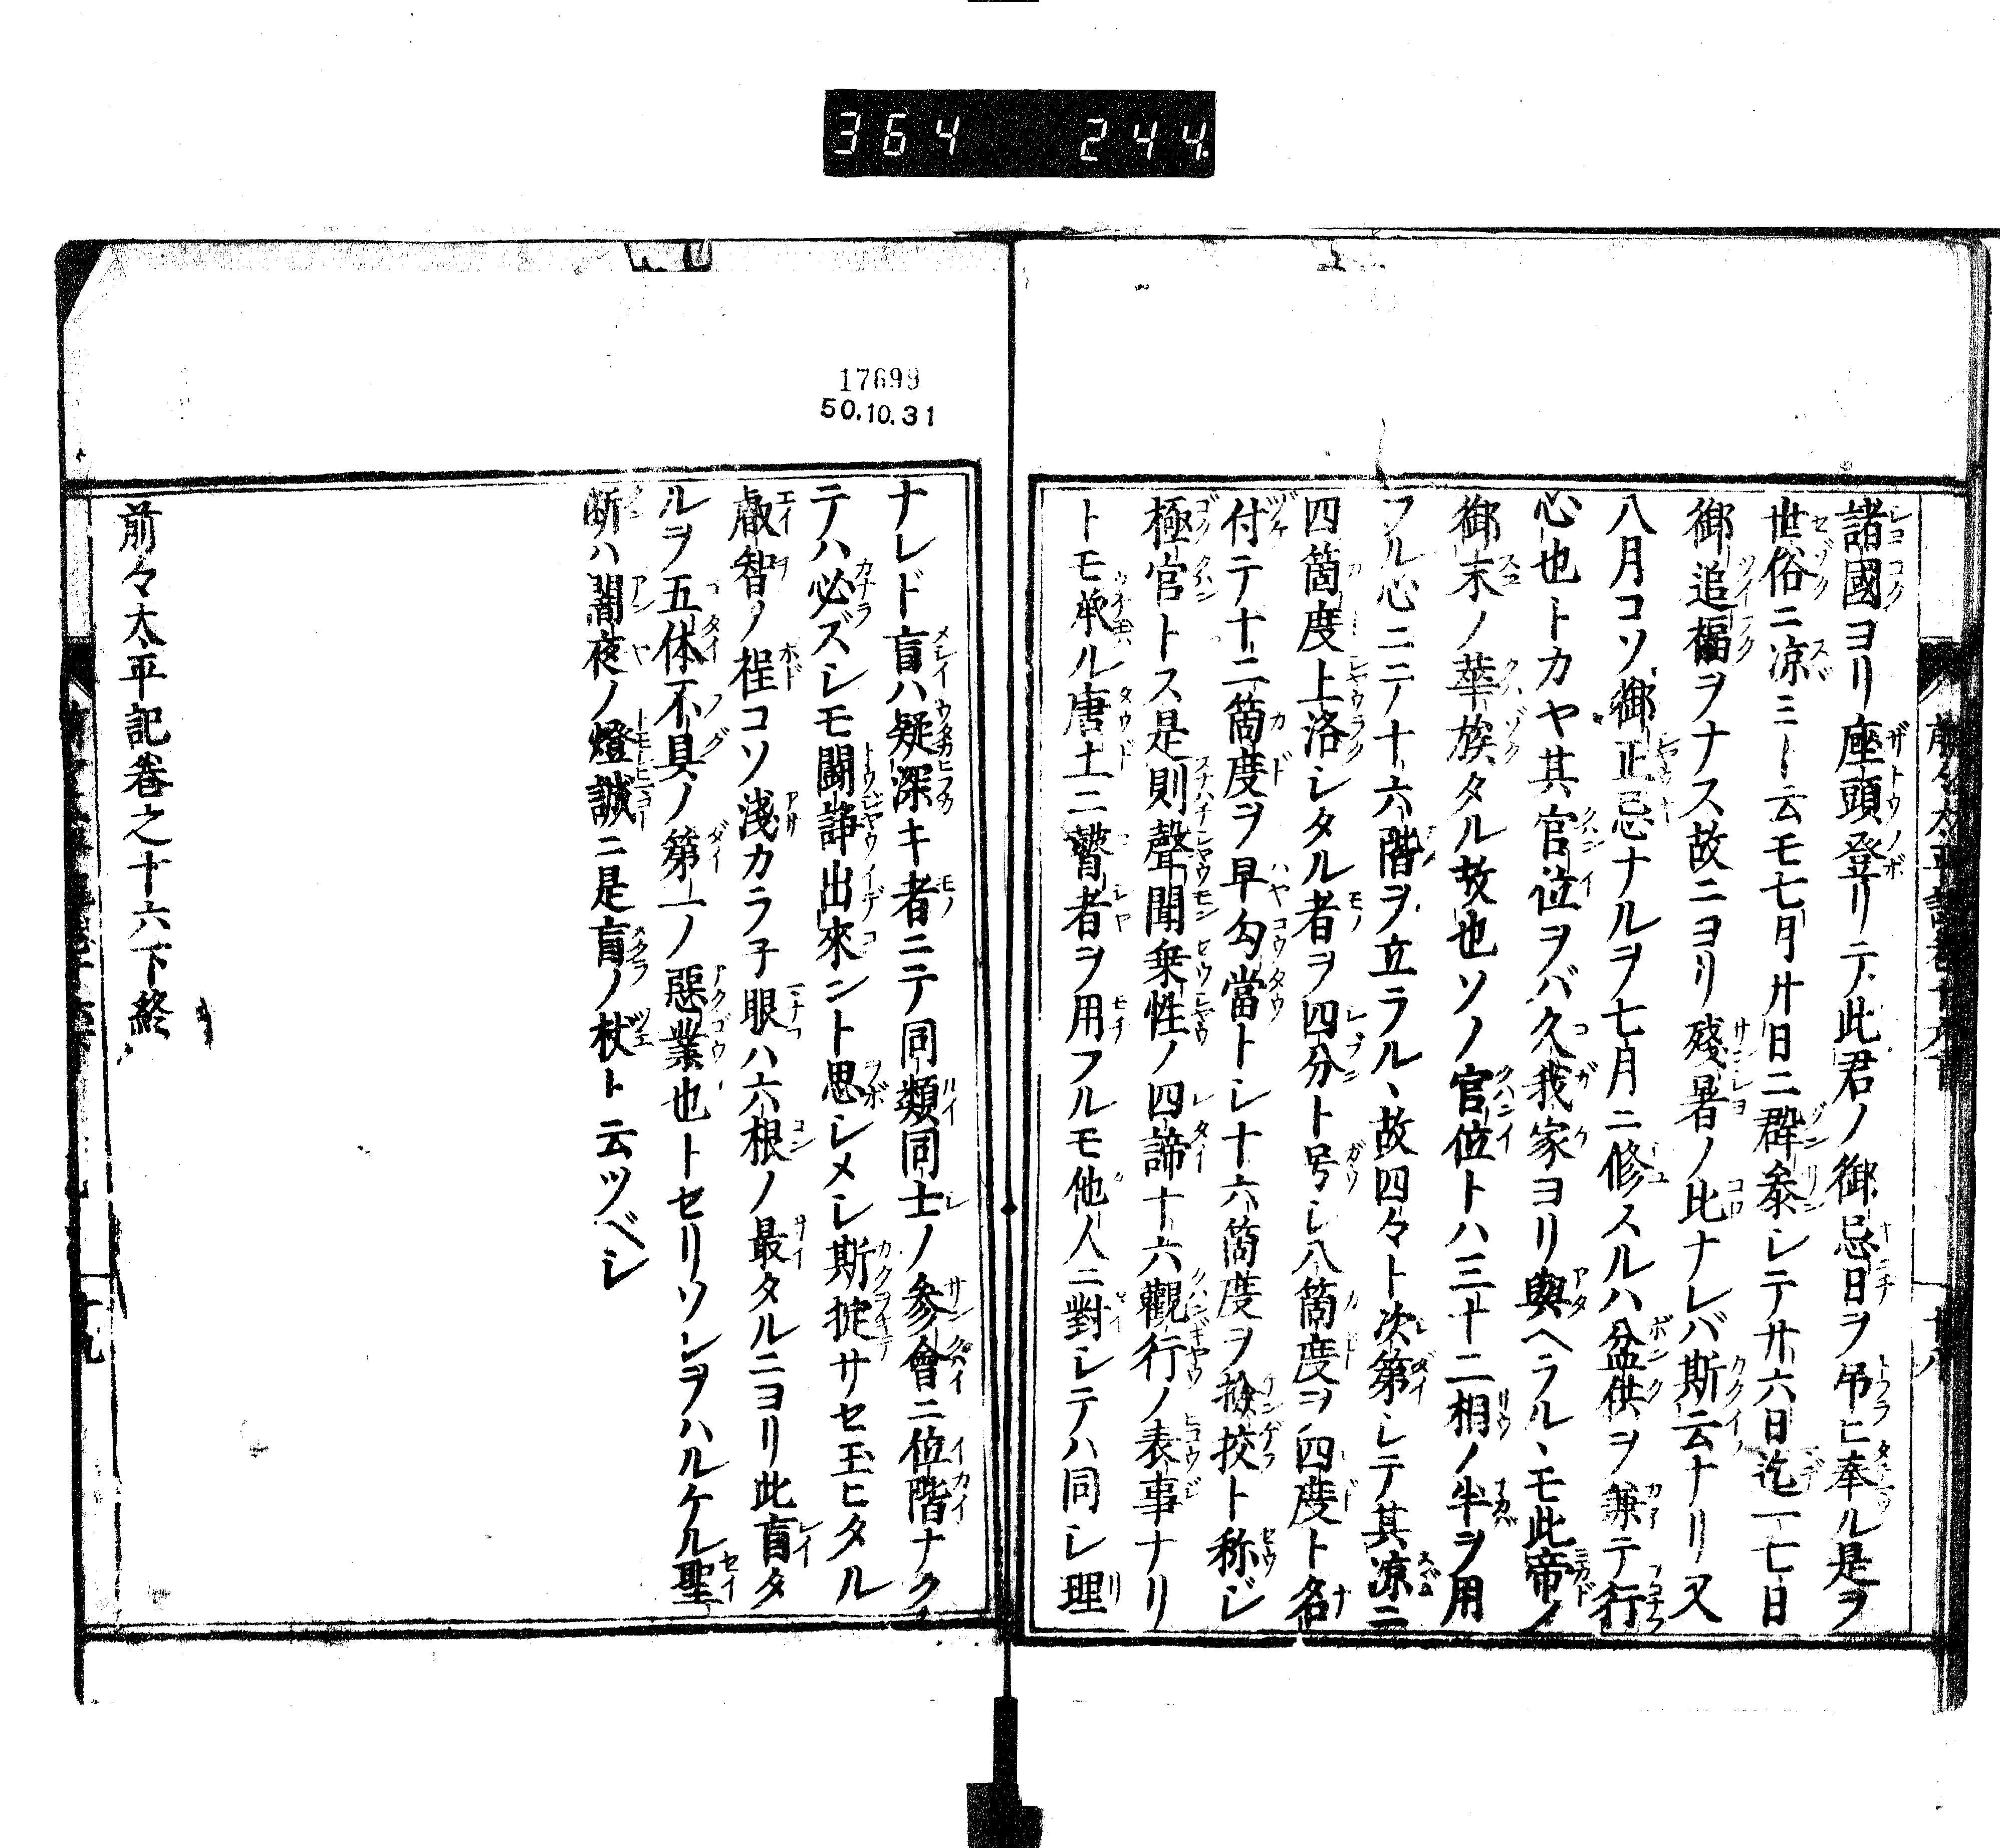 364 244
諸國ヨリ座頭登リテ此君ノ御忌日ヲ吊ヒ奉ル是ヲ
世俗ニ凉ミト云モ七月廿日ニ群參シテ廿六日迄一七日
御追福ヲナス故ニヨリ殘暑ノ比ナレバ斯云ナリ又
八月コソ御正忌ナルヲ七月ニ修スルハ盆供ヲ兼テ行
心也トカヤ其官位ヲバ久我家ヨリ與ヘラルヽモ此帝ノ
御末ノ華族タル故也ソノ官位トハ三十二相ノ半ヲ用
フル心ニテ十六階ヲ立ラルヽ故四々ト次第シテ其凉ニ
四箇度上洛シタル者ヲ四分ト号シ八箇度ヲ四度ト名
付テ十二箇度ヲ早勾當トシ十六箇度ヲ撿挍ト称ジ
極官トス是則聲聞乗性ノ四諦十六觀行ノ表事ナリ
トモ承ル唐土ニ瞽者ヲ用フルモ他人ニ對シテハ同シ理
17699
50.10.31
ナレド盲ハ疑深キ者ニテ同類同士ノ參會ニ位階ナク
テハ必ズシモ鬪諍出來ント思シメシ斯掟サセ玉ヒタル
叡智ノ程コソ淺カラ子眼ハ六根ノ最タルニヨリ此盲タ
ルヲ五体不具ノ第一ノ惡業也トセリソレヲハルケル聖
断ハ闇夜ノ燈誠ニ是盲ノ杖ト云ツベシ
前々太平記卷之十六下終